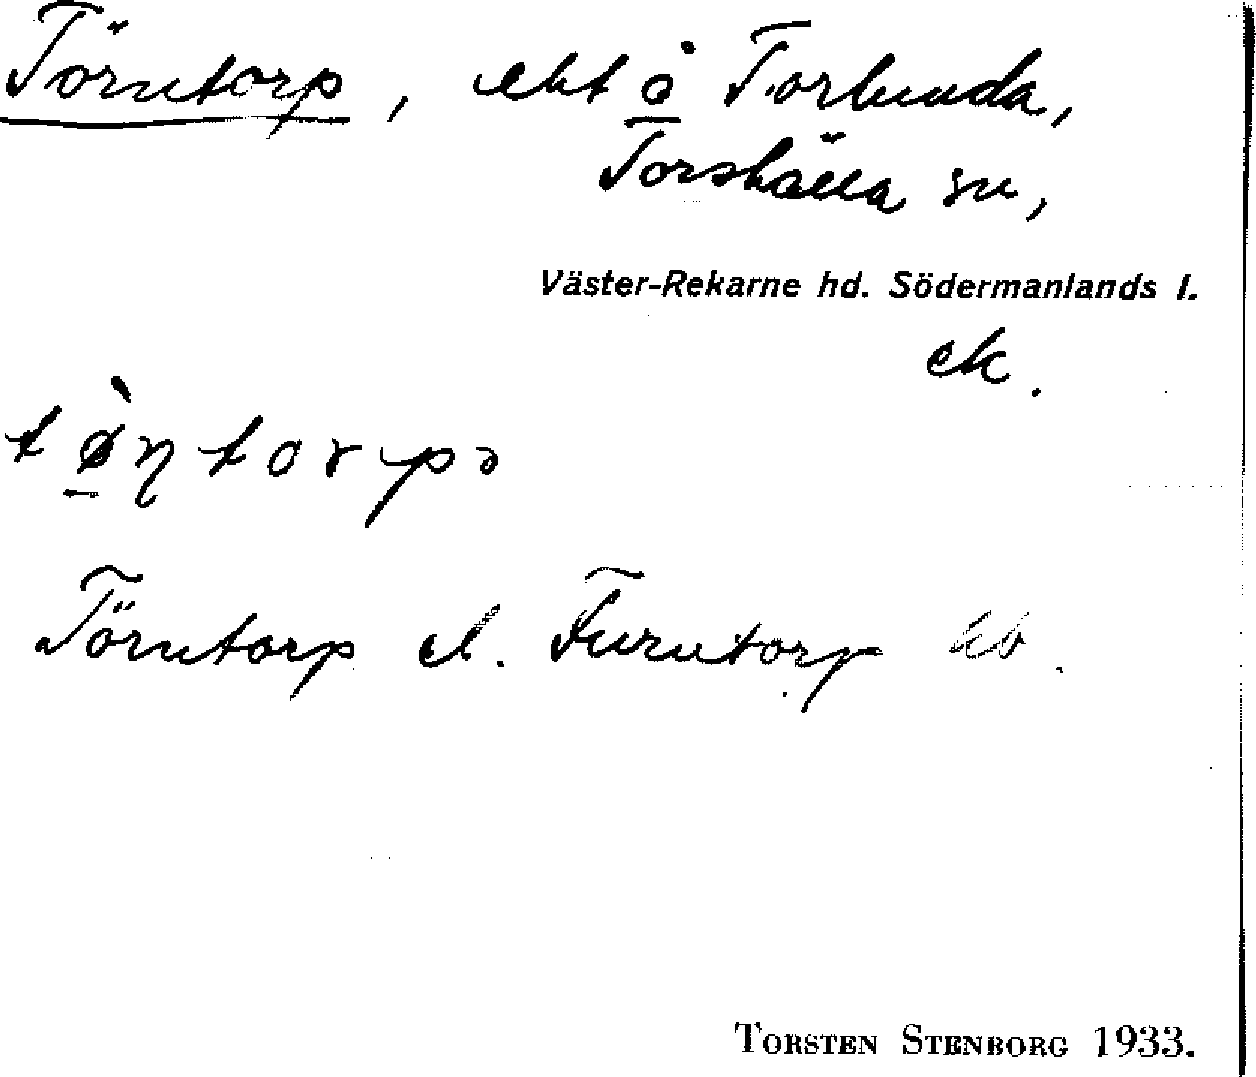 Törntorp, ebt å Torlunda,
Torshälla sn,
Väster-Rekarne hd. Södermanlands l.
ek.
Törntorp el. Furutorp hb.
TORSTEN STENBORG 1933.